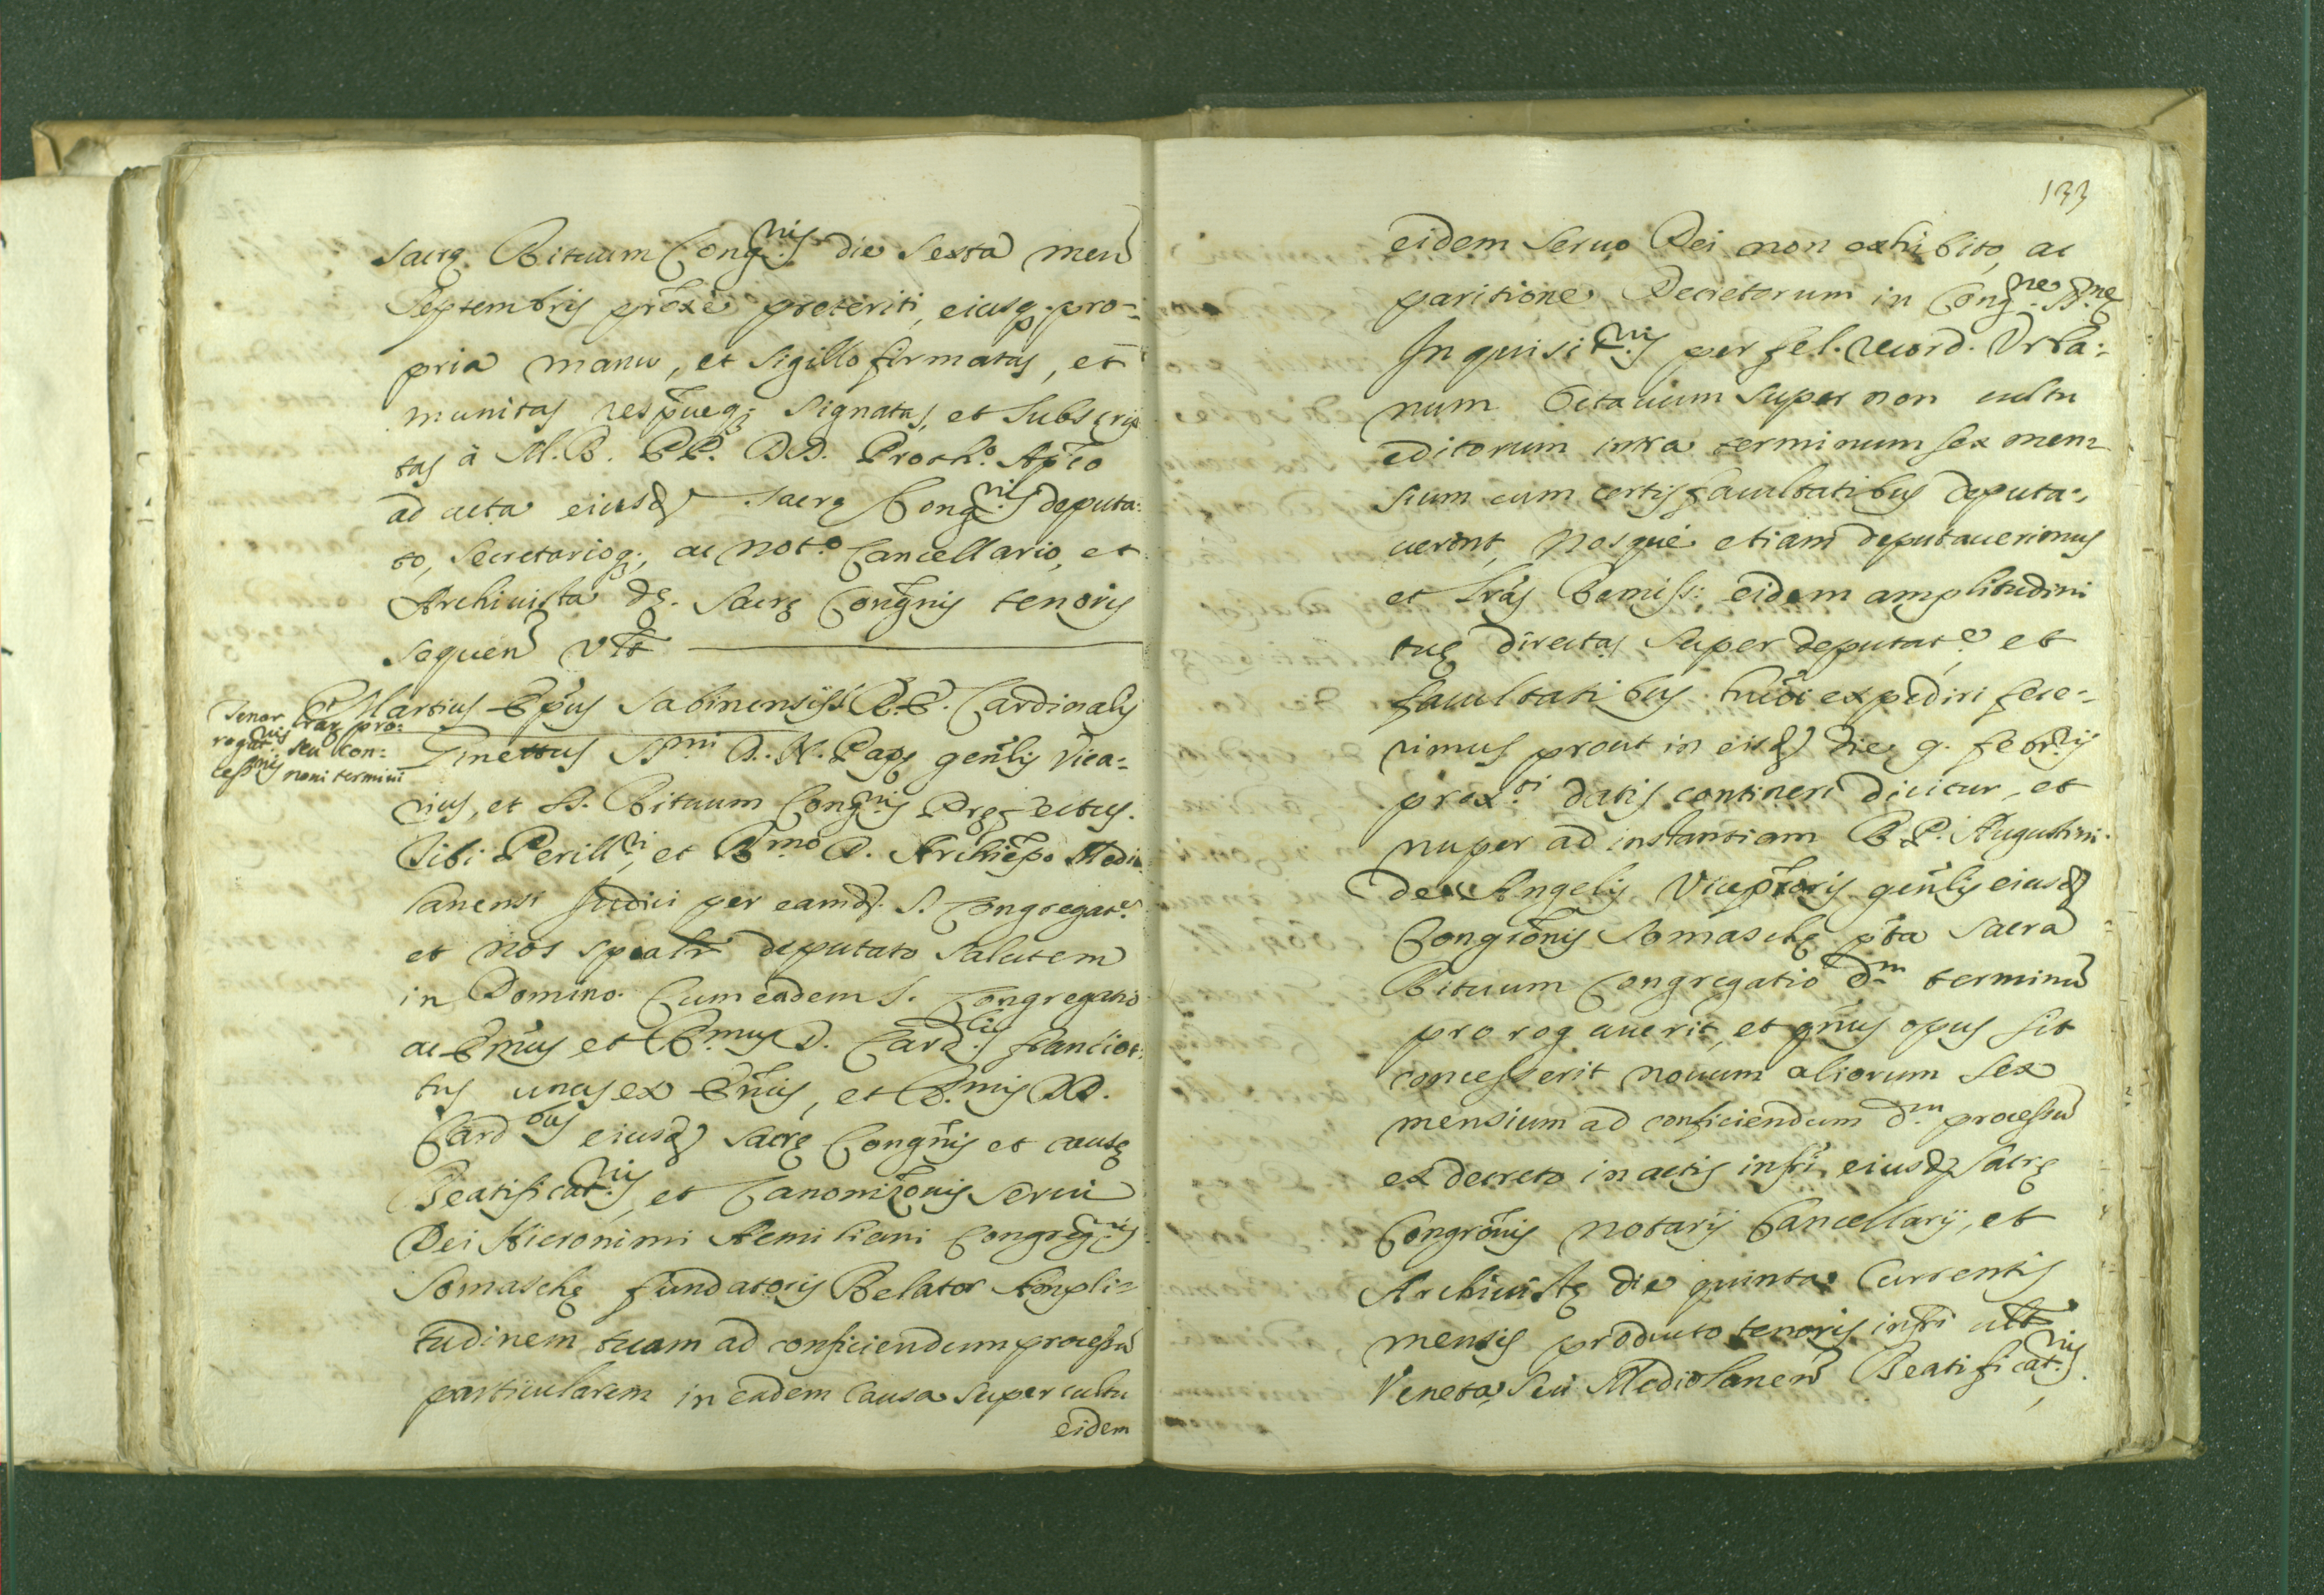 sacrę Rituum Cong.nis die sexta men
Septembris pro᷑xe preteriti, eiusq. pro-
pria manu, et sigillo firmatas, et
munitas respu᷑eq; signatas, et subscrip
tas à M. R. PP. DD. Proth.o Ap᷑co
ad acta eiusd. sacrę Cong.nis deputa:
to, Secretarioq;, ac Not.o Cancellario, et
Archiuista d.ę sacrę Cong᷑nis tenoris
sequen vtt
Tenor l᷑rar pro:
rogat.nis seu con:
cess.nis noui termini
Martius Ep᷑us Sabinensis S.R.E. Cardinalis
Ginettus SS.mi D. N. Papę gen᷑lis Vica-
rius, et SS. Rituum Cong.nis Pręfectus.
Tibi Perill.ri, et R.mo D. Archiep᷑o Medio
lanensi Judici per eamd. S. Congregat.e
et nos sp᷑ealr deputato salutem
in Domino. Cum eadem S. Congregatio
ac Em᷑us et R.mus D. Card.lis Franciot:
tus unus ex Em᷑is, et R.mis DD.
Card.bus eiusd. sacrę Cong᷑nis et causę
Beatificat.nis, et Canoniz᷑onis serui
Dei Hieronimi Aemiliani Congreg.nis
Somaschę fundatoris Relator Ampli=
tudinem tuam ad conficiendum processu
particularem in eadem Causa super cultu
eidem
133
eidem Seruo Dei non exhibito, ac
paritione Decretorum in Cong.ne S.nę
Inquisi.nis per fel. record. Vrba:
num Octauum super non cultu
editorum intra terminum sex men=
sium cum certis facultatibus deputa=
uerint, Nosque etiam deputauerimus
et l᷑ras Remiss: eidem amplitudini
tuę directas super deputat.e, et
facultatibus hui᷑oi expediri fece=
rimus prout in eisd. die 9. febr.rij
prox.ti datis contineri dicitur, et
nuper ad instantiam R. P. Augustini
de Angelis Vicep᷑roris gen᷑lis eiusd.
Congr᷑onis Somaschę p᷑ta Sacra
Rituum Congregatio d.m terminu
prorogauerit, et q᷑nus opus sit
concesserit nouum aliorum sex
mensium ad conficiendum d.m processu
ex decreto in actis infr᷑i eiusd. sacrę
Congr᷑onis Notarij Cancellarij, et
Archiuistę die quinta Currentis
mensis producto tenoris infr᷑i vtt
Veneta, seu Mediolanen Beatificat.nis